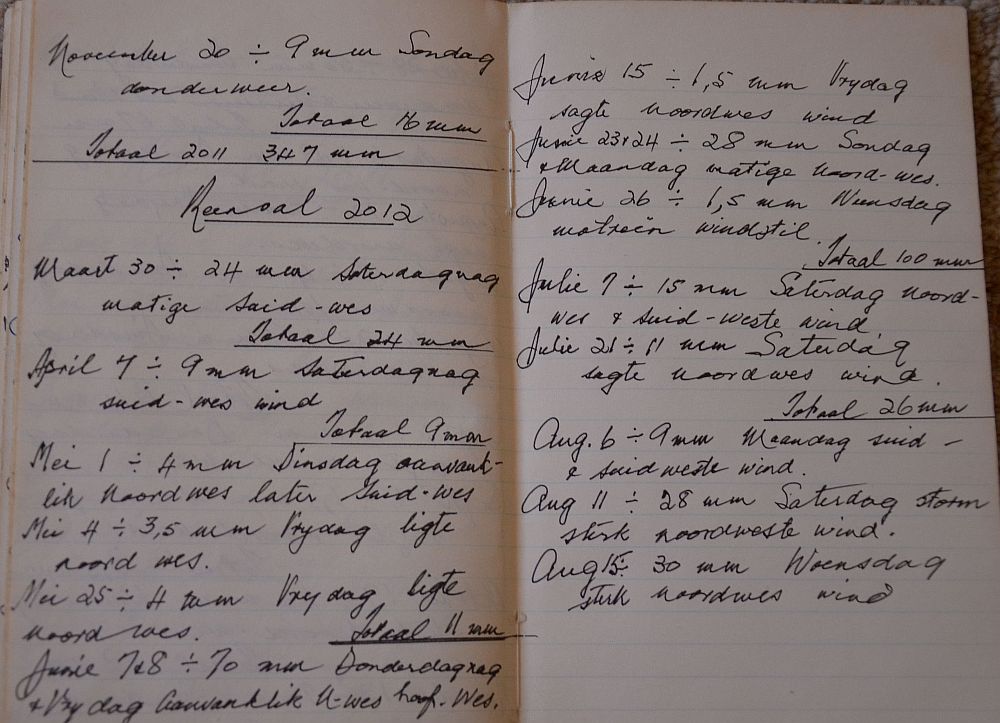 November 20 ÷ 9 mm Sondag
donderweer.
Totaal 16 mm
Totaal 2011 347 mm
Reënval 2012
Maart 30 ÷ 24 mm Saterdagnag
matige suid-wes
Totaal 24 mm
April 7 ÷ 9 mm Saterdagnag
suid-wes wind
Totaal 9 mm
Mei 1 ÷ 4 mm Dinsdag aanvank-
lik Noordwes later Suid-wes
Mei 4 ÷ 3,5 mm Vrydag ligte
noord wes.
Mei 25 ÷ 4 mm Vrydag ligte
noord wes.
Totaal 11 mm
Junie 7&8 ÷ 70 mm Donderdagnag
& Vrydag aanvanklik N-wes Wes.
Junie 15 ÷ 1,5 mm Vrydag
sagte noordwes wind
Junie 23&24 ÷ 28 mm Sondag
& Maandag matige noord-wes.
Junie 26 ÷ 1,5 mm Woensdag
motreën windstil.
Totaal 100 mm
Julie 7 ÷ 15 mm Saterdag noord-
wes & suid-weste wind.
Julie 21 ÷ 11 mm Saterdag
sagte noordwes wind.
Totaal 26 mm
Aug. 6 ÷ 9 mm Maandag suid -
& suidweste wind.
Aug 11 ÷ 28 mm Saterdag storm
sterk noordweste wind.
Aug 15 ÷ 30 mm Woensdag
sterk noordwes wind